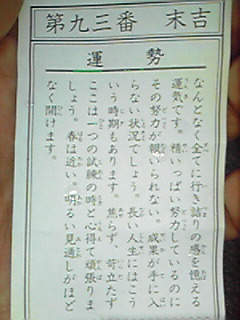 第九三番 末吉
運勢
なんとなく全てに行き詰りの感を憶える
運気です。精いっぱい努力しているのに
その努力が報いられない。成果が手に入
らない状況でしょう。長い人生にはこう
いう時期もあります。焦らず、苛立たず
ここは一つの試練の時と心得て頑張りま
しょう。春は近い。明るい見通しがほど
なく開けます。